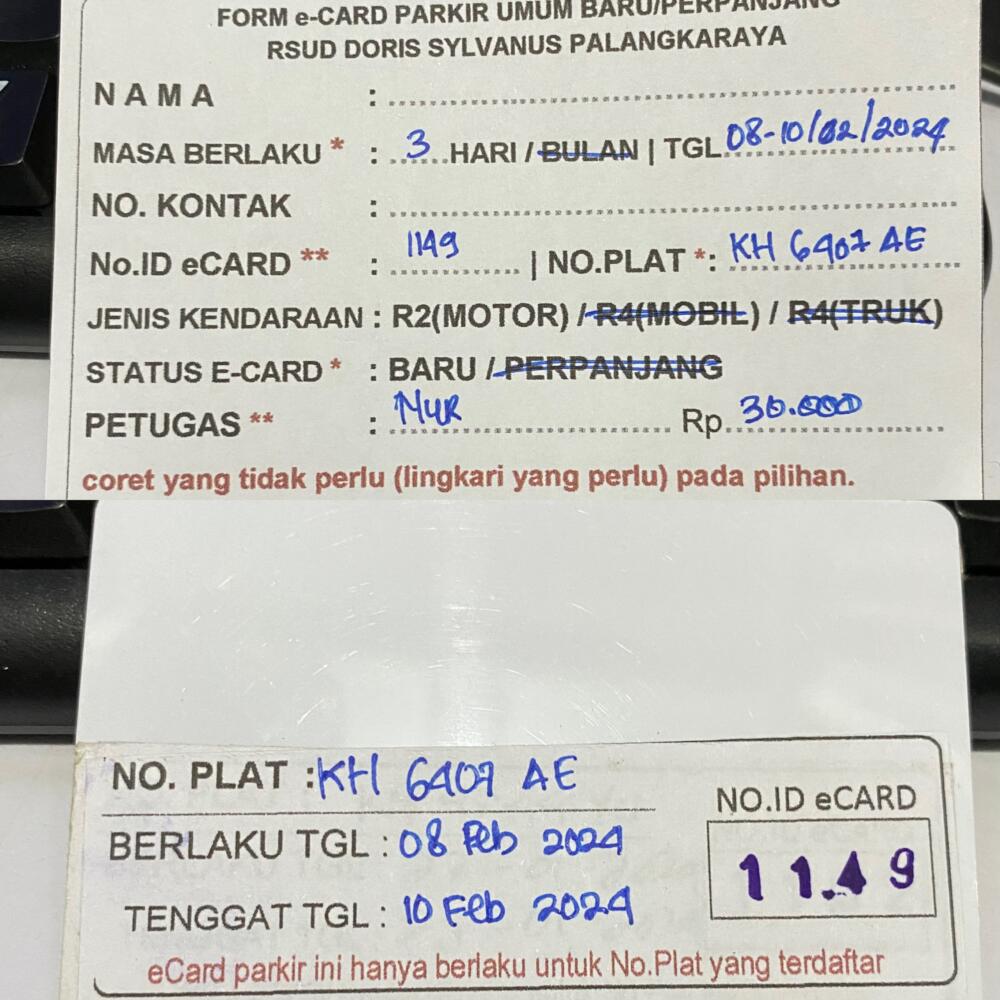 FORM e-CARD PARKIR UMUM BARU/PERPANJANG
RSUD DORIS SYLVANUS PALANGKARAYA
NAMA :
MASA BERLAKU * : 3 HARI / BULAN | TGL 08-10/02/2024
NO. KONTAK :
No.ID eCARD ** : 1149 | NO.PLAT *: KH 6407 AE
JENIS KENDARAAN : R2(MOTOR) / R4(MOBIL) / R4(TRUK)
STATUS E-CARD * : BARU / PERPANJANG
PETUGAS ** : NUR Rp 30.000
coret yang tidak perlu (lingkari yang perlu) pada pilihan.
NO. PLAT : KH 6407 AE
BERLAKU TGL : 08 Feb 2024
TENGGAT TGL : 10 Feb 2024
NO.ID eCARD
1 1.4 9
eCard parkir ini hanya berlaku untuk No.Plat yang terdaftar